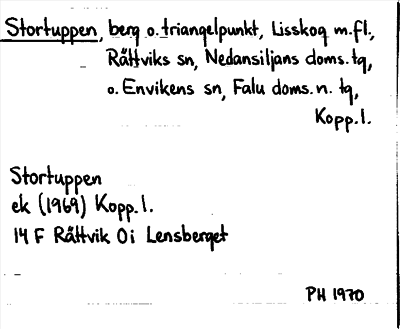 Stortuppen, berg o. triangelpunkt, Lisskog m.fl.,
Rättviks sn, Nedansiljans doms. tg,
o. Envikens sn, Falu doms. n. tg,
Kopp. l.
Stortuppen
ek (1969) Kopp. l.
14 F Rättvik 0i Lensberget
PH 1970